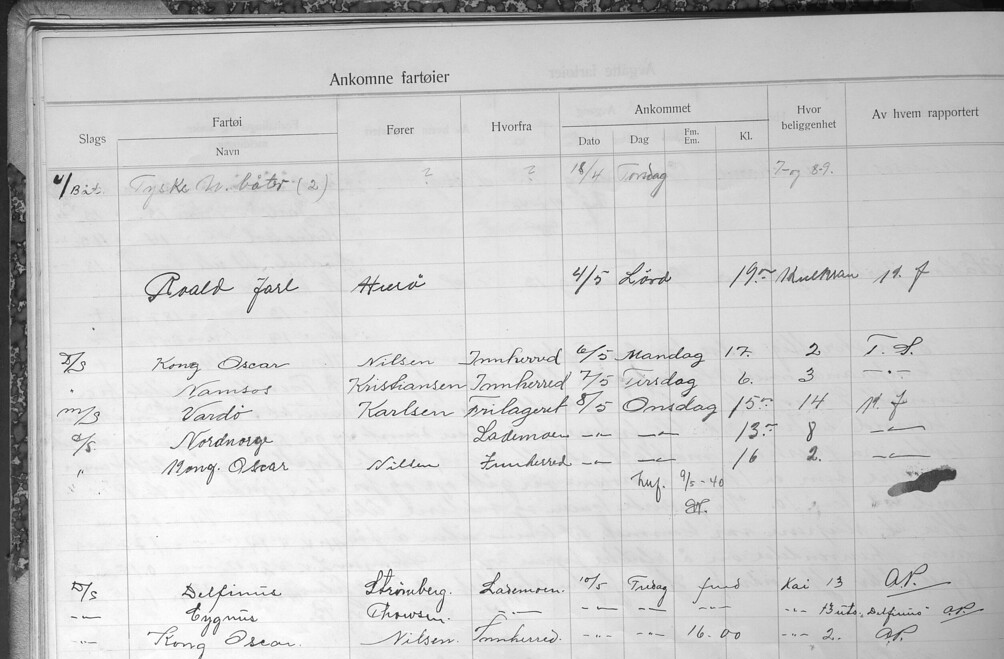 Ankomne fartøier
Slags Fartøi Fører Hvorfra Ankommet Hvor beliggenhet Av hvem rapportert
Navn Dato Dag Fm. Em. Kl.
U/Båt Tyske U. båter (2) ? ? 18/4 Torsdag 7- og 8-9.
Roald Jarl 4/5 Lörd 19 -
D/S Kong Oscar Nilsen Innherred 6/5 Mandag 17. 2 T. S.
" Namsos Kristiansen Innherred 7/5 Tirsdag 6. 3 - " -
M/S Vardö Karlsen Frilageret 8/5 Onsdag 15 - 14
D/S. Nordnorge Lademoen - " - - " - 13 - 8 - " -
" Kong. Oscar Nilsen Innherred - " - - " - 16 2. - " -
" 9/5 - 40
D/S Delfinus Strømberg. Lademoen. 10/5 Fredag Kai 13 AP.
- " - Cygnus - " - - " - - " - - " - 13 uts. Delfinus AP.
- " - Kong Oscar. Nilsen. Innherred. - " - - " - 16.00 - " - 2. AP.